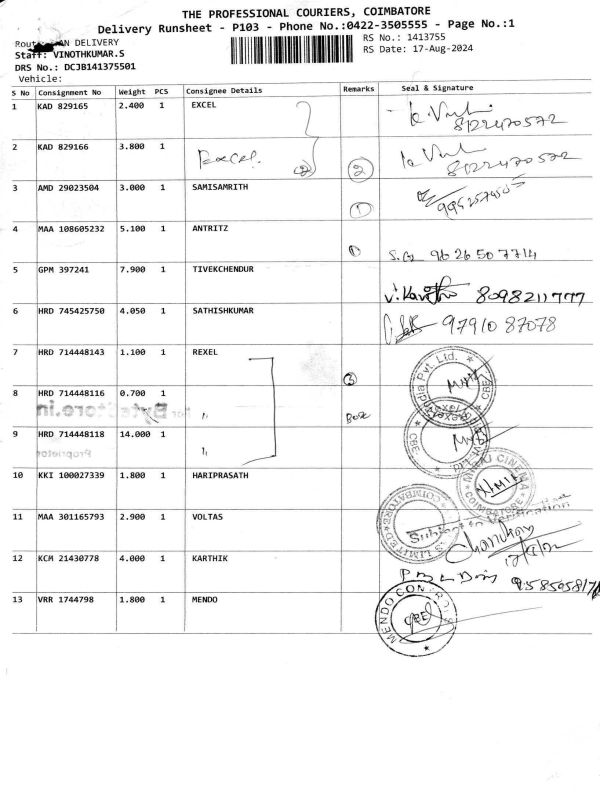 THE PROFESSIONAL COURIERS, COIMBATORE
Delivery Runsheet - P103 - Phone No.:0422-3505555 - Page No.:1
RS No.: 1413755
RS Date: 17-Aug-2024
DELIVERY
Staff: VINOTHKUMAR.S
DRS No.: DCJB141375501
Vehicle:
S No Consignment No Weight PCS Consignee Details Remarks Seal & Signature
1 KAD 829165 2.400 1 EXCEL
8122470572
2 KAD 829166 3.800 1 Excel. (2) 2
8122470572
3 AMD 29023504 3.000 1 SAMISAMRITH 1
4 MAA 108605232 5.100 1 ANTRITZ 1 9626507714
5 GPM 397241 7.900 1 TIVEKCHENDUR 8098211777
6 HRD 745425750 4.050 1 SATHISHKUMAR 9791087078
7 HRD 714448143 1.100 1 REXEL 3
Pvt. Ltd.
CBE
8 HRD 714448116 0.700 1 " Box
ByteStore.in
CBE
9 HRD 714448118 14.000 1 "
Proprietor
10 KKI 100027339 1.800 1 HARIPRASATH
CINEMA
COIMBATORE
11 MAA 301165793 2.900 1 VOLTAS
COIMBATORE
LIMITED
Subject to Verification
12 KCM 21430778 4.000 1 KARTHIK
13 VRR 1744798 1.800 1 MENDO
MENDO CONTROLS